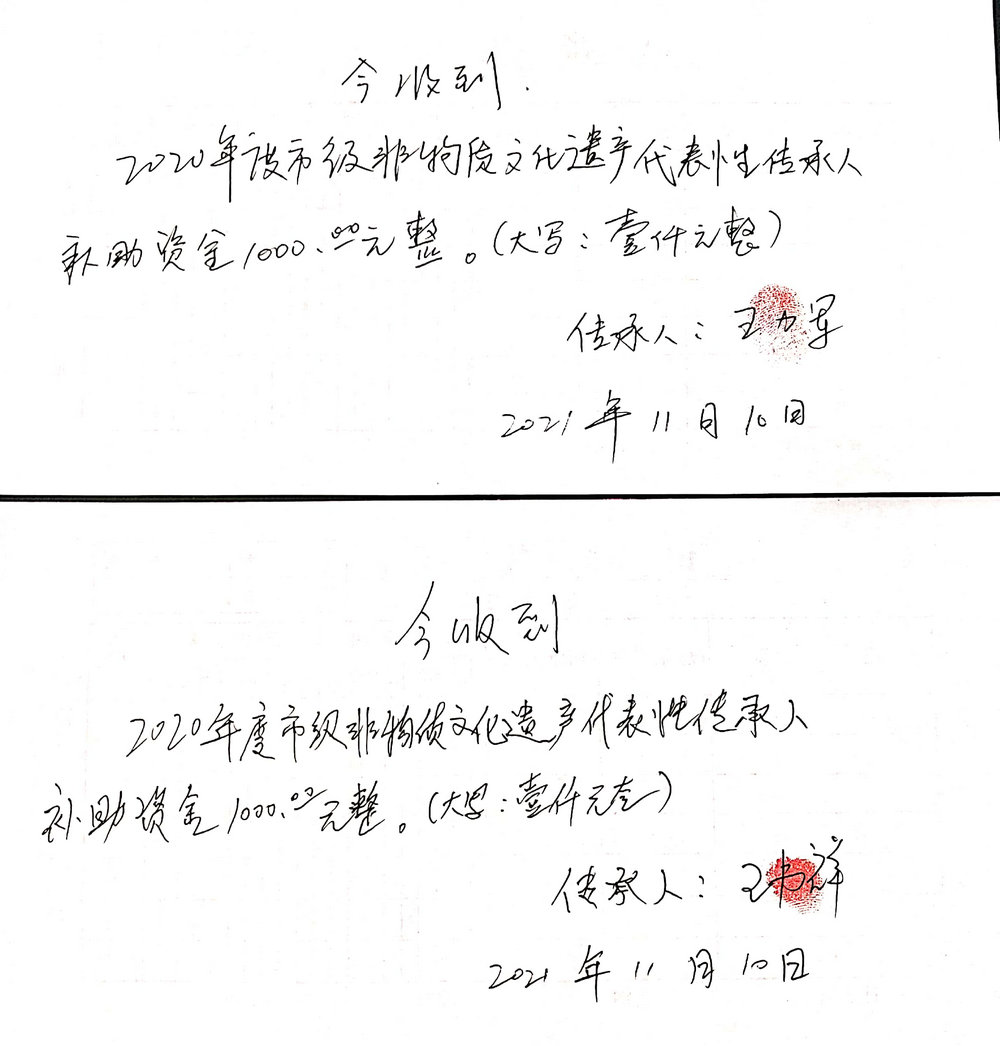 今收到.
2020年度市级非物质文化遗产代表性传承人
补助资金1000.00元整。(大写：壹仟元整)
传承人：王力军
2021年11月10日
今收到
2020年度市级非物质文化遗产代表性传承人
补助资金1000.00元整。(大写：壹仟元整)
传承人：王书祥
2021年11月10日